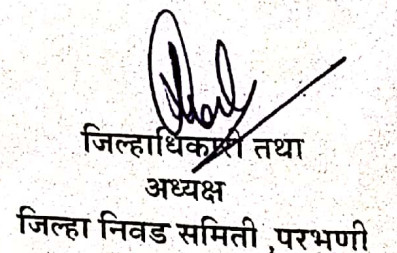 जिल्हाधिकारी तथा
अध्यक्ष
जिल्हा निवड समिती ,परभणी